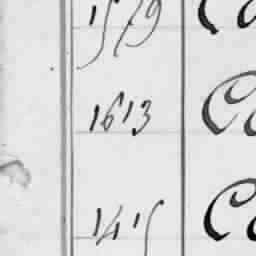 1579 C
1613 C
1415 C